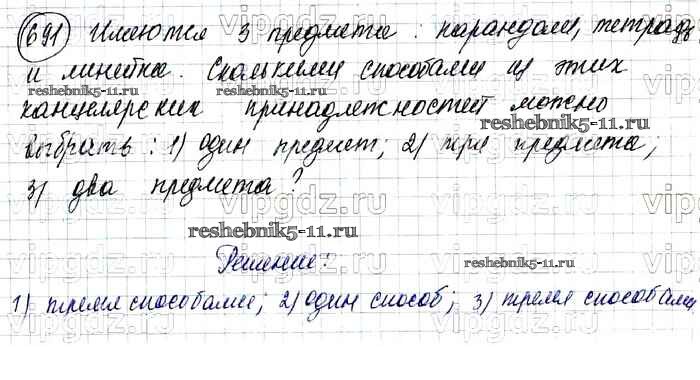 691 Имеются 3 предмета: карандаш, тетрадь
и линейка. Сколькими способами из этих
reshebnik5-11.ru reshebnik5-11.ru
канцелярских принадлежностей можно
reshebnik5-11.ru
выбрать: 1) один предмет; 2) три предмета;
3) два предмета?
vipgdz.ru vipgdz.ru vipgdz.ru
reshebnik5-11.ru
Решение:
reshebnik5-11.ru
1) тремя способами; 2) один способ; 3) тремя способами
vipgdz.ru vipgdz.ru vipgdz.ru